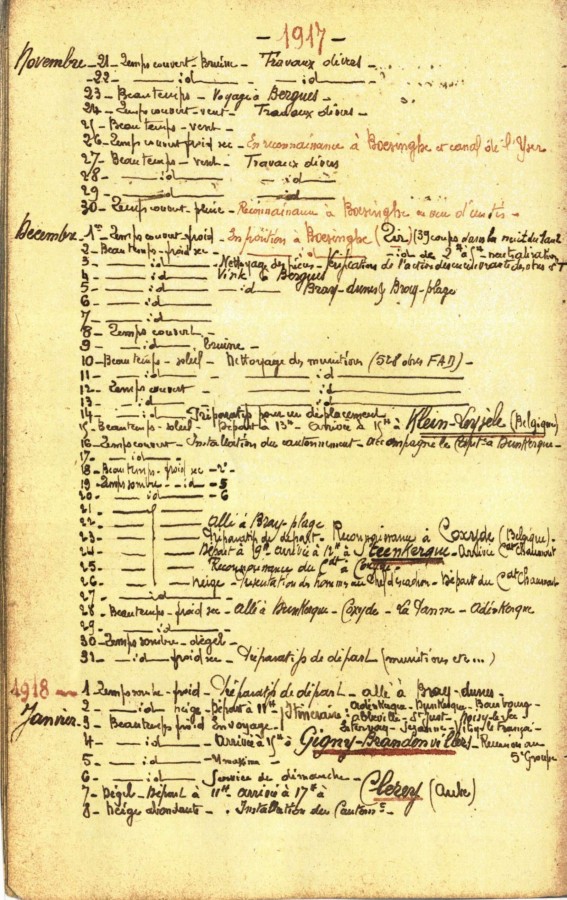 - 1917 -
Novembre - 21 - Temps couvert - Bruine - Travaux divers -
- 22 - — id — - — id — -
23 - Beau temps - Voyage à Bergues -
24 - Temps couvert - vent - Travaux divers -
25 - Beau temps - vent -
26 - Temps couvert froid sec - En reconnaissance à Boesinghe et canal de l'Yser
27 - Beau temps - vent - Travaux divers
28 - — id — — id —
29 - — id — — id —
30 - Temps couvert - pluie - Reconnaissance à Boesinghe
Decembre - 1er - Temps couvert - froid - En position à Boesinghe (Tir) (39 coups dans la nuit du 1 au 2
2 - Beau temps - froid sec - — id — de 2h à 5h - neutralisation
3 - — id — - Nettoyage des pièces -
4 - — id — à Bergues
5 - — id — - — id — Bray-dunes & Bray-plage
6 - — id —
7 - — id —
8 - Temps couvert -
9 - — id — Bruine -
10 - Beau temps - soleil - Nettoyage des munitions (528 obus FAD) -
11 - — id — — id —
12 - Temps couvert — id —
13 - — id — — id —
14 - — id — Préparatifs pour un déplacement
15 - Beau temps - soleil - Départ à 13h - arrivée à 15h à Klein-Loysèle (Belgique)
16 - Temps couvert - Installation du cantonnement - accompagne le Capt à Dunkerque -
17 - — id —
18 - Beau temps - froid sec - -2°
19 - Temps sombre - id - -5
20 - — id — -6
21 -
22 - allé à Bray-plage
23 - Préparatifs de départ - Reconnaissance à Coxyde (Belgique) -
24 - Départ à 9h arrivée à 12h à Steenkerque - Arrivée Cdt Chauvart
25 - Reconnaissance du Cdt à Coxyde -
26 - — id — neige - Présentation des hommes au Chef d'escadron - Départ du Cdt Chauvart
27 - — id —
28 - Beau temps - froid sec - allé à Dunkerque - Coxyde - La Panne - Adinkerque
29 - — id —
30 - Temps sombre - dégel -
31 - — id — froid sec - Préparatifs de départ (munitions etc...)
1918 - 1 - Temps sombre - froid - Préparatifs de départ - allé à Bray-dunes -
Janvier - 2 - — id — neige - Départ à 11h Itinéraire: Adinkerque - Dunkerque - Bourbourg -
3 - Beau temps froid En voyage Abbeville - St Just - Noisy-le-Sec
Esternay - Sézanne - Vitry-le-François -
4 - — id — - Arrivée à 15h à Gigny-Brandonvillers - Réunion au
5 - — id — 5e Groupe
6 - — id — Service de dimanche -
7 - Dégel - Départ à 11h - arrivée à 17h à Clérey (Aube)
8 - Neige abondante - Installation du Cantont -